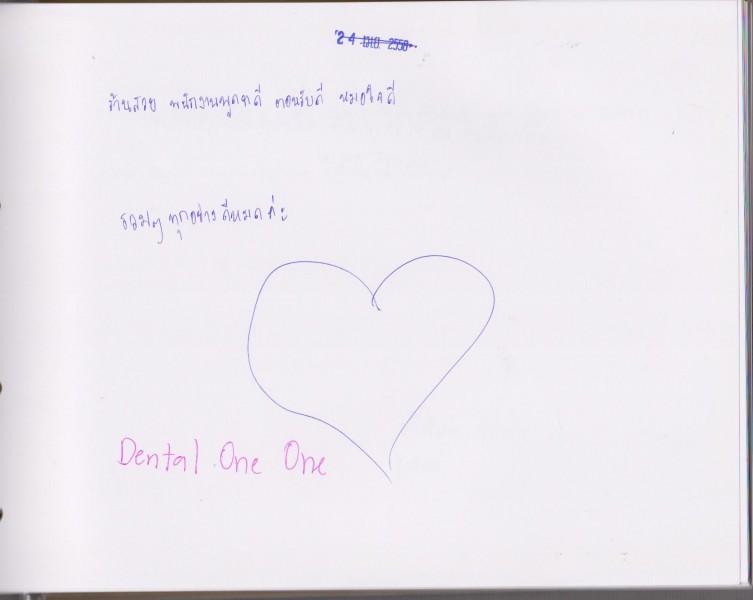 24 เม.ย. 2550
ร้านสวย พนักงานพูดจาดี ตอนรับดี หมอใจดี
รวมๆ ทุกอย่างดีหมดค่ะ
Dental One One